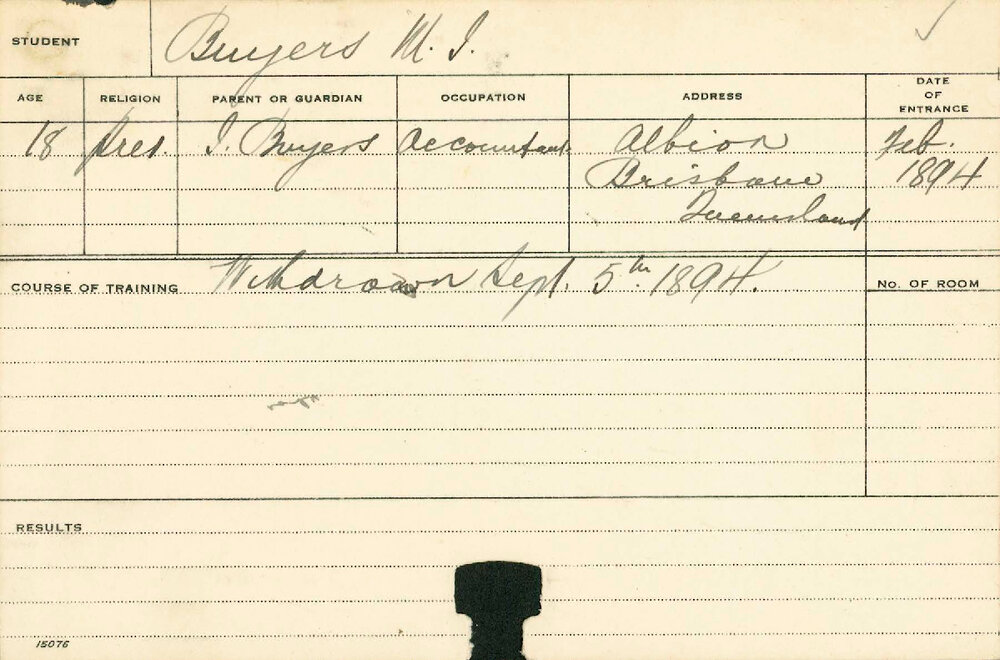 STUDENT Buyers M. I.
AGE RELIGION PARENT OR GUARDIAN OCCUPATION ADDRESS DATE OF ENTRANCE
18 Pres. I. Buyers Accountant Albion Feb.
Brisbane 1894
Queensland
COURSE OF TRAINING Withdrawn Sept. 5th. 1894. No. OF ROOM
RESULTS
15076